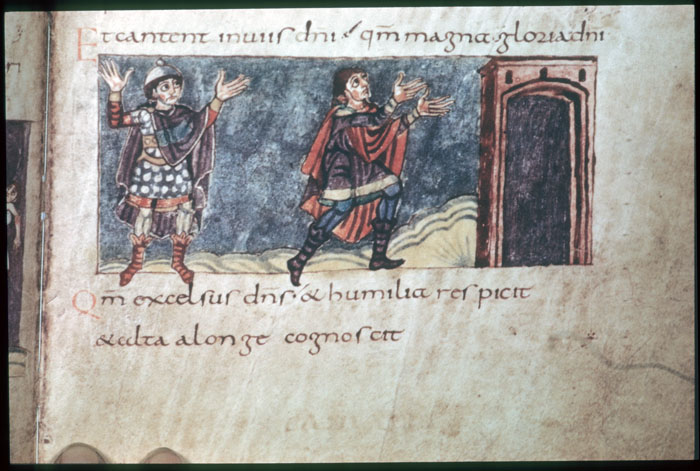 Et cantent in viis dni qm magna gloria dni
Qm excelsus dns & humilia respicit
& alta alonge cognoscit